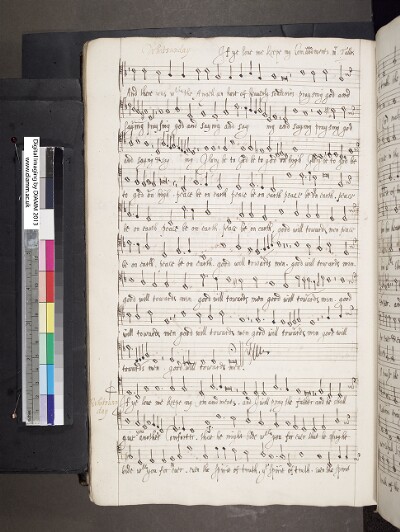 If ye love me keepe my Com̃andments mr Tallis
And there was wth the Angell an host of heavenly souldiers praysing god and
saying praysing god and saying and say ing and saying praysing god
and saying Glory be to god be to god on high Glory be to god be
to god on high peace be on earth peace be on earth peace be on earth peace
be on earth peace be on earth peace be on earth, good will towards men peace
be on earth, peace be on earth. good will towards men. good will towards men.
good will towards men. good will towards men good will towards men. good
will towards men good will towards men good will towards men good will
towards men. good will towards men.
If ye love me keepe my com andments. and I will pray the father and he shall
give you another comforter. that he might bide wth you for ever that he might
bide wth you for ever. even the spirit of truth, ye spirit of truth. even the spirit
Digital Imaging by DIAMM 2013
www.diamm.ac.uk